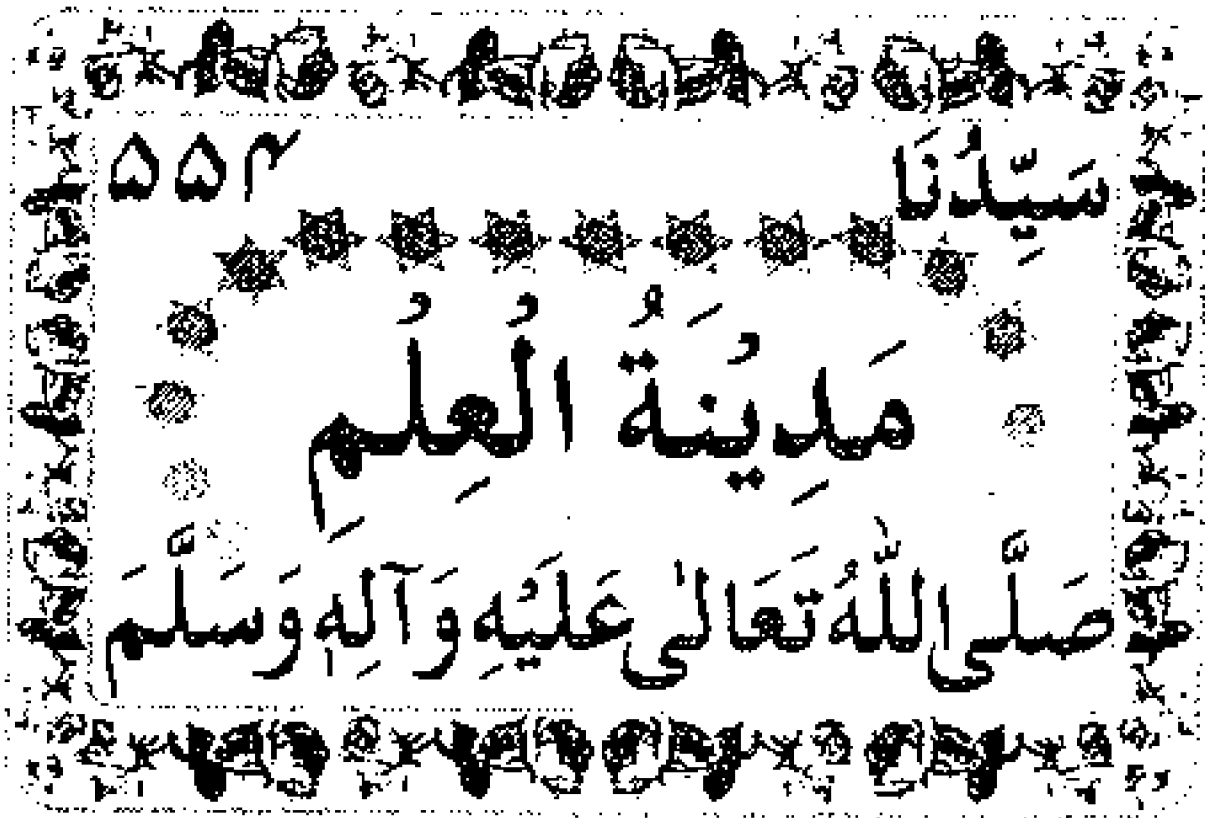 سَيِّدُنَا ۵۵۴
مَدِيْنَةُ الْعِلْمِ
صَلَّی اللّٰهُ تَعَالٰی عَلَيْهِ وَآلِهٖ وَسَلَّمَ